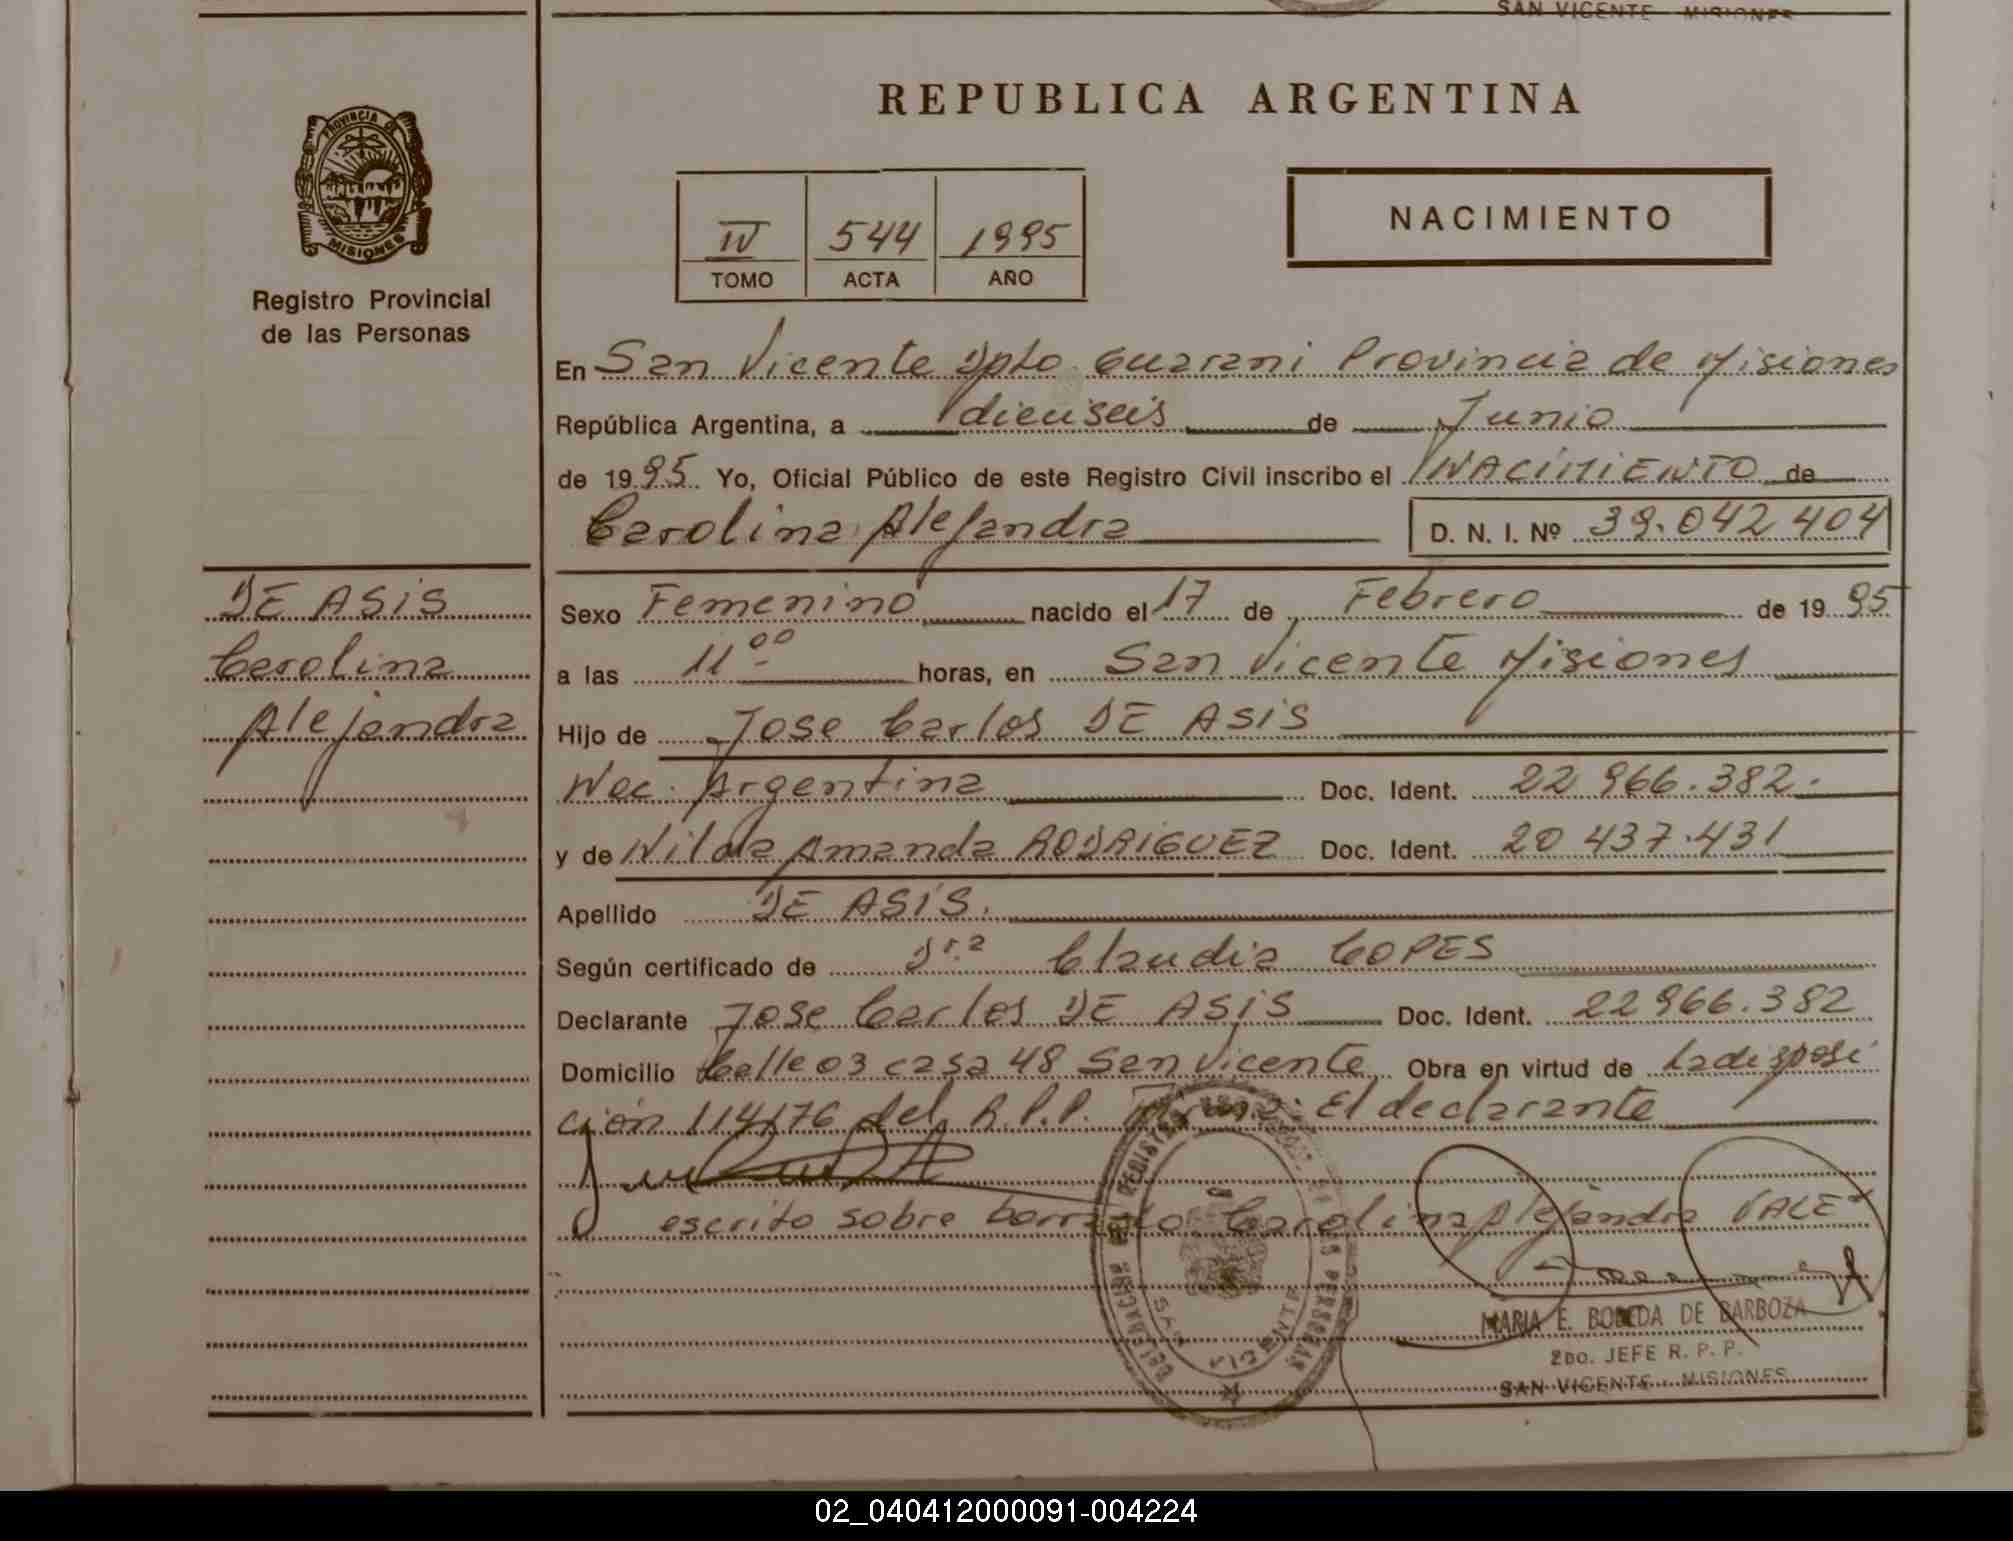 SAN VICENTE MISIONES
PROVINCIA DE
MISIONES
Registro Provincial
de las Personas
DE ASIS
Carolina
Alejandra
REPUBLICA ARGENTINA
IV 544 1995
TOMO ACTA AÑO
NACIMIENTO
En San Vicente Dpto Guarani Provincia de Misiones
República Argentina, a dieciseis de Junio
de 1995 Yo, Oficial Público de este Registro Civil inscribo el NACIMIENTO de
Carolina Alejandra D. N. I. Nº 39.042 404
Sexo Femenino nacido el 17 de Febrero de 1995
a las 11 00 horas, en San Vicente Misiones
Hijo de Jose Carlos DE ASIS
Nac. Argentina Doc. Ident. 22 966.382.
y de Nilda Amanda RODRIGUEZ Doc. Ident. 20 437.431
Apellido DE ASIS.
Según certificado de Dra Claudia COPES
Declarante Jose Carlos DE ASIS Doc. Ident. 22 966.382
Domicilio Calle 03 casa 48 San Vicente Obra en virtud de La disposi
ción 114/76 del R.P.P. Firma: El declarante
escrito sobre borrado Carolina Alejandra VALE
DELEGACION DEL REGISTRO DE LAS PERSONAS
SAN VICENTE
MARIA E. BOBEDA DE BARBOZA
2DO. JEFE R. P. P.
SAN VICENTE - MISIONES
02_040412000091-004224